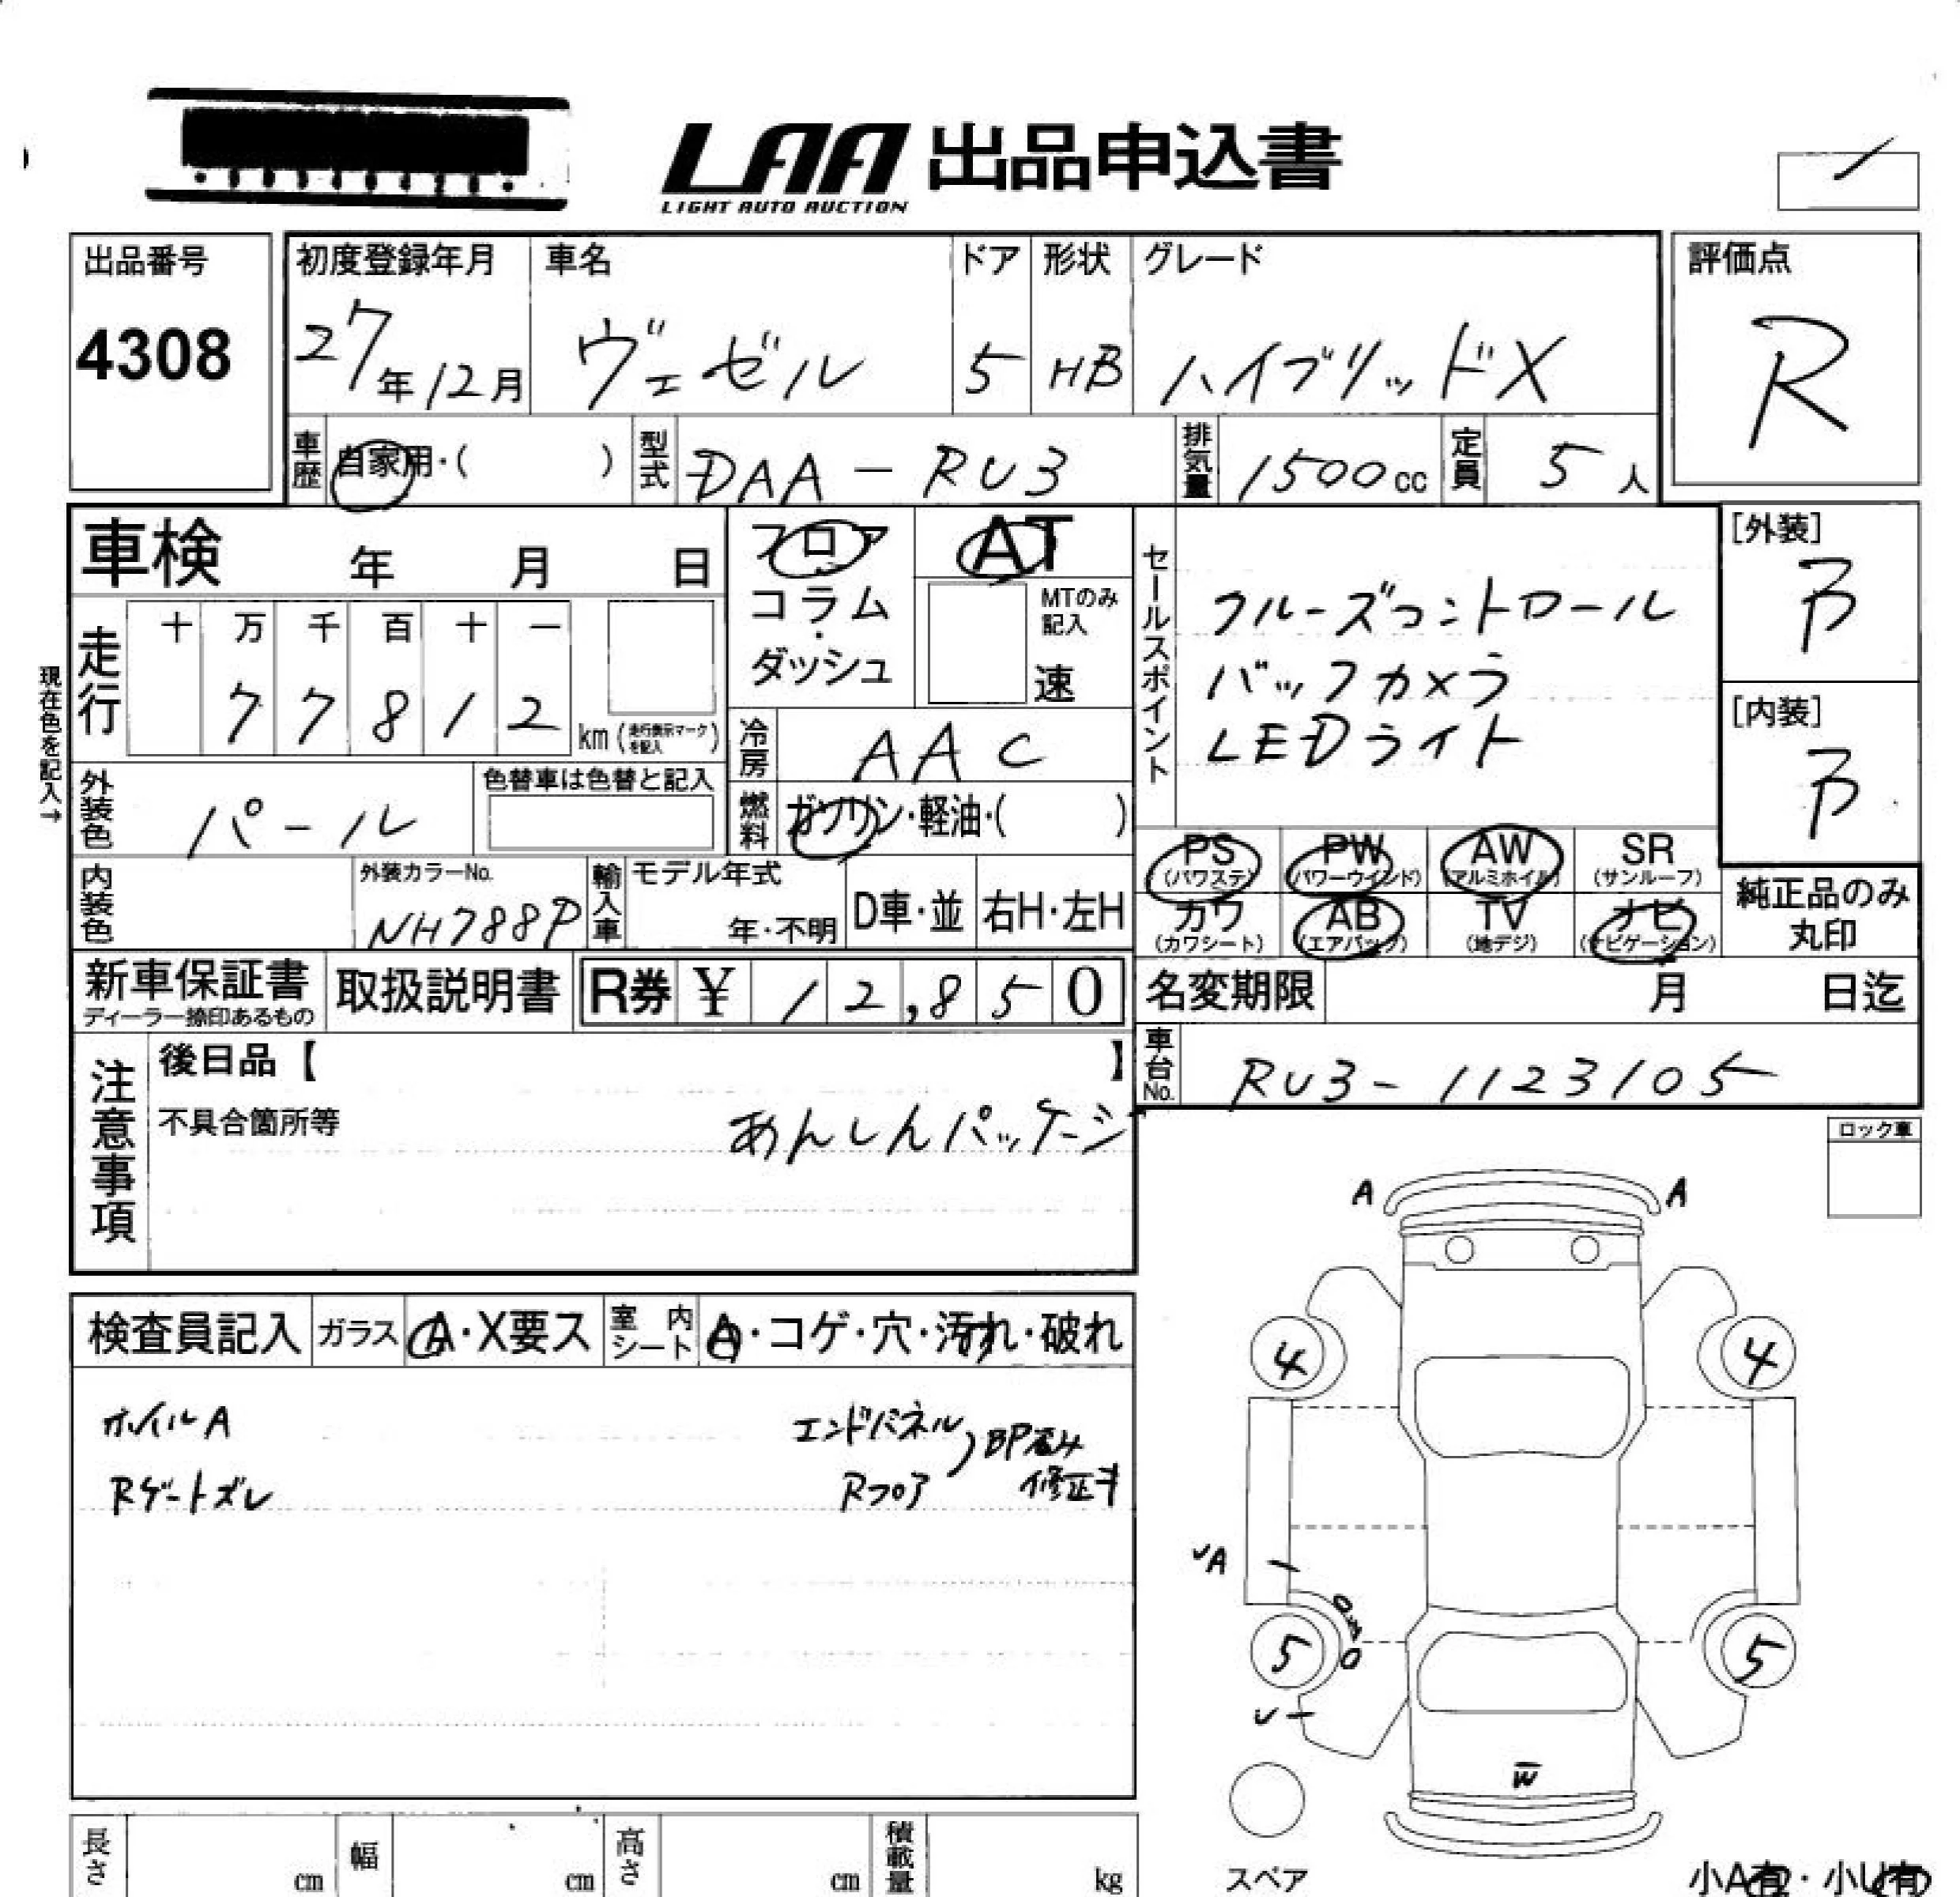 LAA 出品申込書
LIGHT AUTO AUCTION
出品番号
4308
初度登録年月
27年12月
車名
ヴェゼル
ドア
5
形状
HB
グレード
ハイブリッドX
評価点
R
車歴
自家用・( )
型式
DAA-RU3
排気量
1500cc
定員
5人
車検 年 月 日
フロア
コラム
・
ダッシュ
AT
MTのみ
記入
速
セールスポイント
クルーズコントロール
バックカメラ
LEDライト
[外装]
B
[内装]
B
現在色を記入→
走行
十 万 千 百 十 一
7 7 8 1 2
km (走行表示マークを記入)
冷房
AAC
外装色
パール
色替車は色替と記入
燃料
ガソリン・軽油・( )
内装色
外装カラーNo.
NH788P
輸入車
モデル年式
年・不明
D車・並
右H・左H
PS
(パワステ)
PW
(パワーウインド)
AW
(アルミホイル)
SR
(サンルーフ)
カワ
(カワシート)
AB
(エアバック)
TV
(地デジ)
ナビ
(ナビゲーション)
純正品のみ
丸印
新車保証書
ディーラー捺印あるもの
取扱説明書
R券 ¥ 12,850
名変期限 月 日迄
車台No.
RU3-1123105
注意事項
後日品【 】
不具合箇所等
あんしんパッケージ
ロック車
検査員記入
ガラス
A・X要ス
室内シート
A・コゲ・穴・汚れ・破れ
ホイルA
Rゲートズレ
エンドパネル
Rフロア
BP歪み
修正キ
A A
4 4
A
5 5
W
スペア
長さ cm
幅 cm
高さ cm
積載量 kg
小A有・小U有